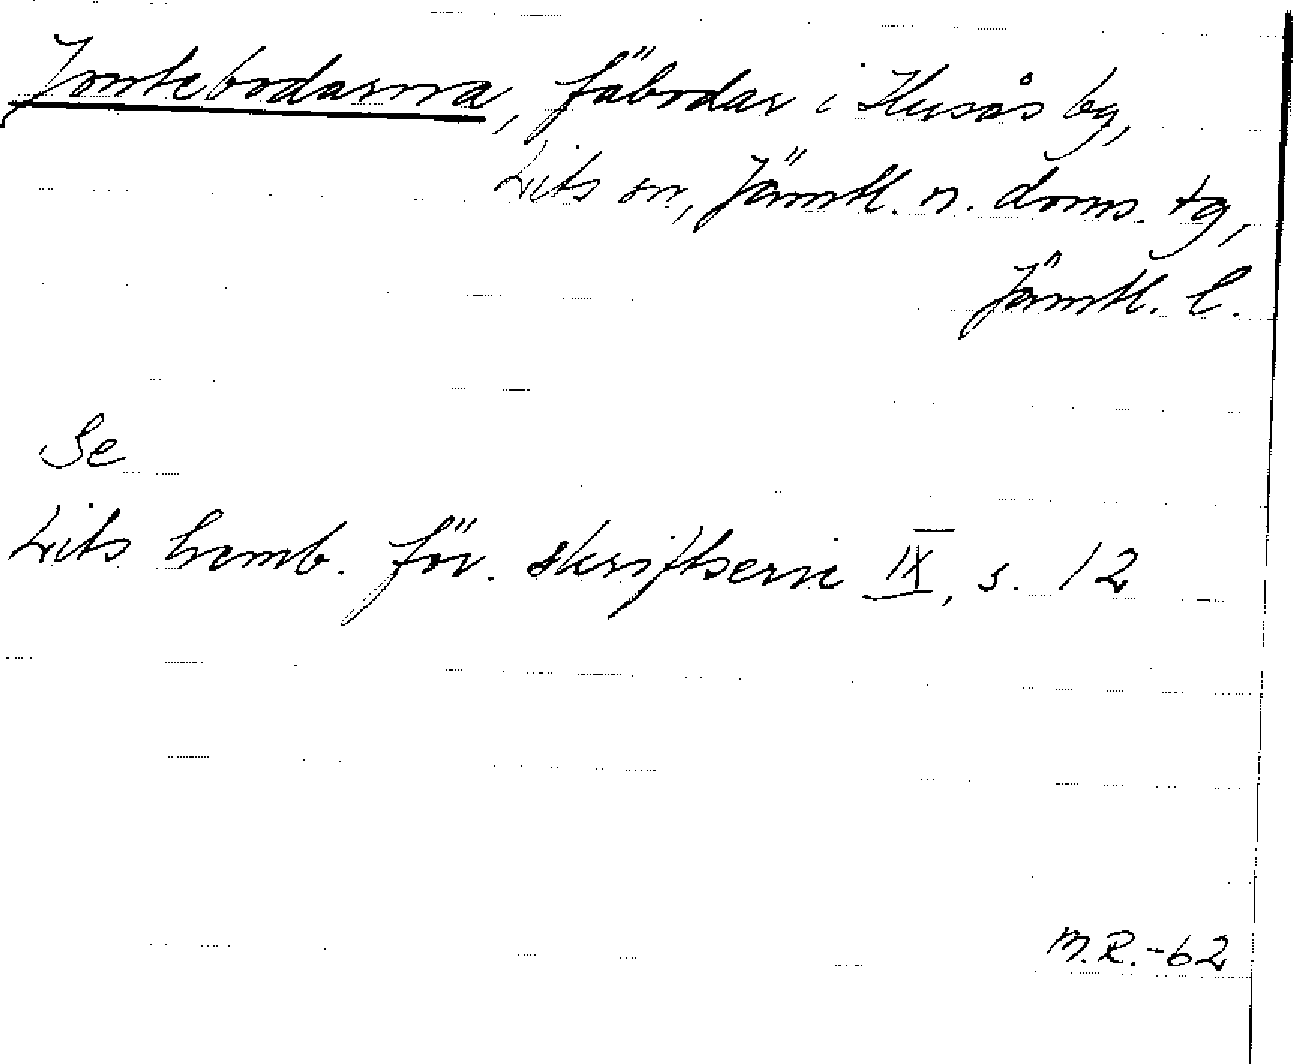 Jontebodarna, fäbodar i Husås by,
Lits sn, Jämtl. n. doms. tg,
Jämtl. l.
Se
Lits hemb. för. skriftserie IX, s. 12
M.R.-62